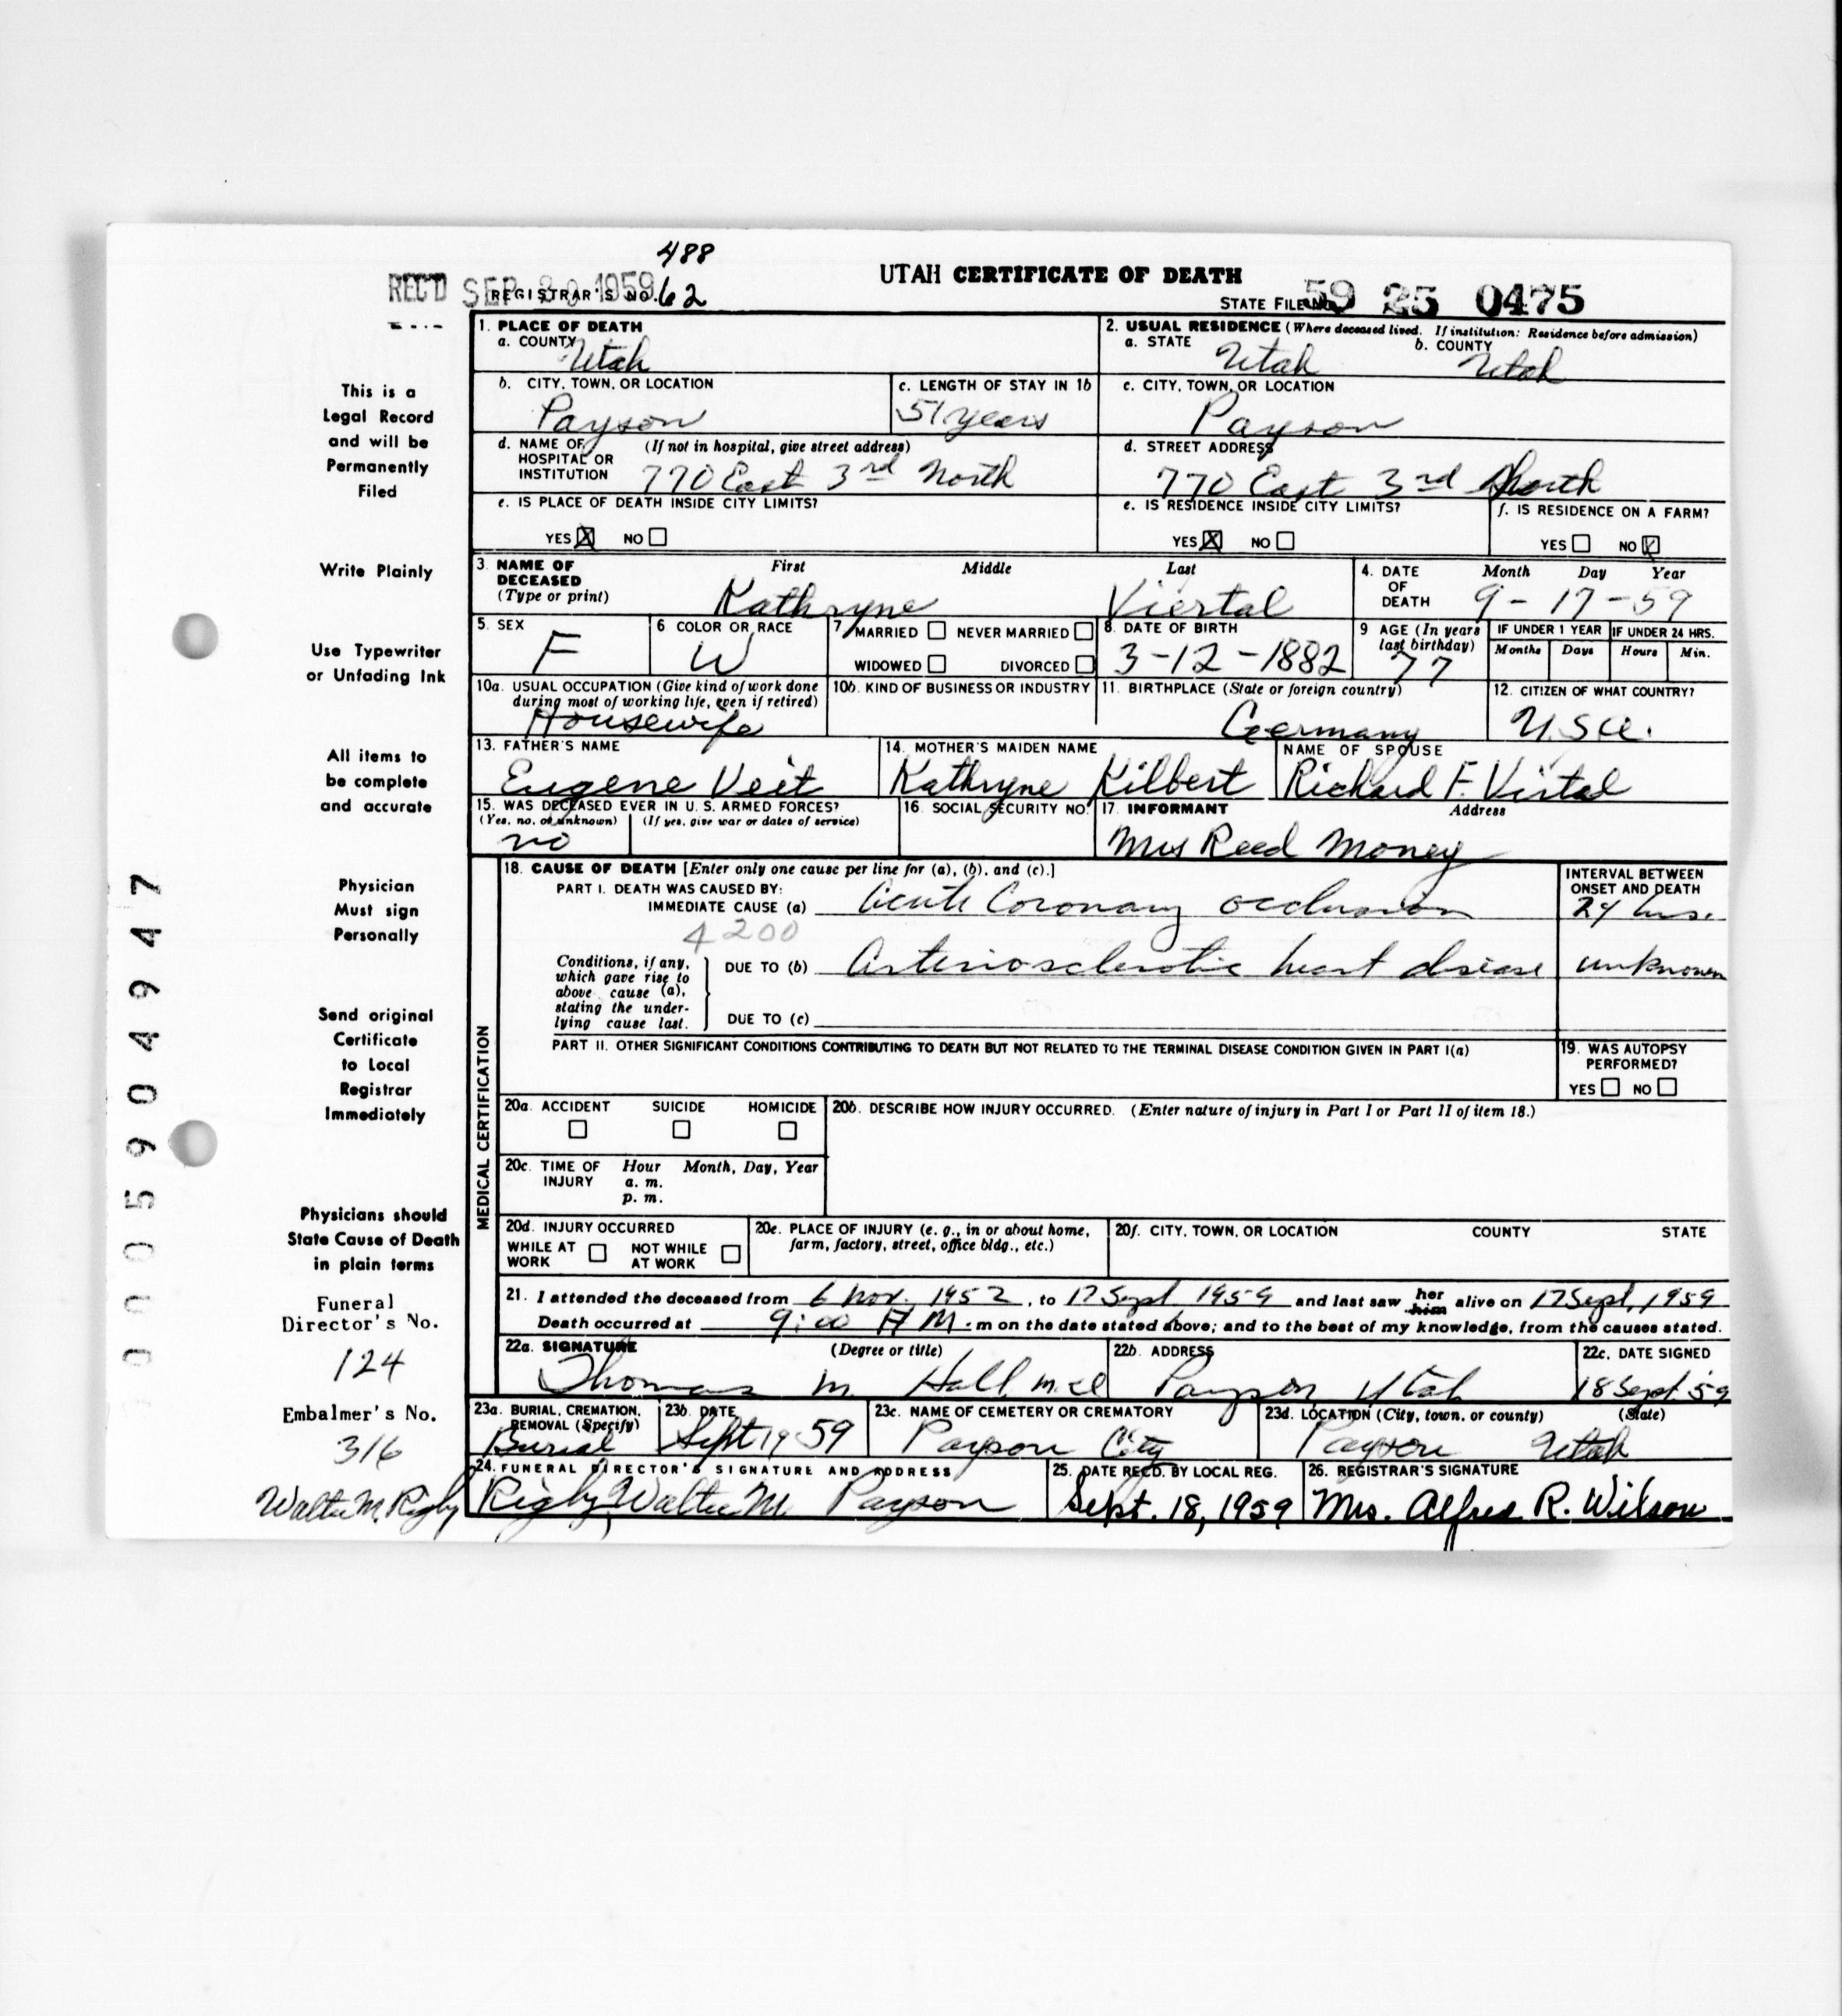 488
REC'D SEP 30 1959 REGISTRAR'S NO. 62
UTAH CERTIFICATE OF DEATH
STATE FILE NO. 59 25 0475
1. PLACE OF DEATH
a. COUNTY
Utah
2. USUAL RESIDENCE (Where deceased lived. If institution: Residence before admission)
a. STATE b. COUNTY
Utah Utah
b. CITY, TOWN, OR LOCATION
Payson
c. LENGTH OF STAY IN 1b
51 years
c. CITY, TOWN, OR LOCATION
Payson
d. NAME OF (If not in hospital, give street address)
HOSPITAL OR
INSTITUTION 770 East 3rd North
d. STREET ADDRESS
770 East 3rd North
e. IS PLACE OF DEATH INSIDE CITY LIMITS?
YES X NO
e. IS RESIDENCE INSIDE CITY LIMITS?
YES X NO
f. IS RESIDENCE ON A FARM?
YES NO
3. NAME OF First Middle Last
DECEASED
(Type or print) Kathryne Viertal
4. DATE Month Day Year
OF
DEATH 9-17-59
5. SEX
F
6 COLOR OR RACE
W
7 MARRIED NEVER MARRIED
WIDOWED DIVORCED
8. DATE OF BIRTH
3-12-1882
9 AGE (In years
last birthday)
77
IF UNDER 1 YEAR IF UNDER 24 HRS.
Months Days Hours Min.
10a. USUAL OCCUPATION (Give kind of work done
during most of working life, even if retired)
Housewife
10b. KIND OF BUSINESS OR INDUSTRY
11. BIRTHPLACE (State or foreign country)
Germany
12. CITIZEN OF WHAT COUNTRY?
U.S.A.
13. FATHER'S NAME
Eugene Veit
14. MOTHER'S MAIDEN NAME
Kathryne Kilbert
NAME OF SPOUSE
Richard F. Virtal
15. WAS DECEASED EVER IN U. S. ARMED FORCES?
(Yes, no, or unknown) (If yes, give war or dates of service)
no
16. SOCIAL SECURITY NO.
17. INFORMANT Address
Mrs Reed Money
MEDICAL CERTIFICATION
18. CAUSE OF DEATH [Enter only one cause per line for (a), (b), and (c).]
PART I. DEATH WAS CAUSED BY:
IMMEDIATE CAUSE (a) Acute Coronary occlusion
4200
Conditions, if any,
which gave rise to
above cause (a),
stating the under-
lying cause last.
DUE TO (b) Arteriosclerotic heart disease
DUE TO (c)
INTERVAL BETWEEN
ONSET AND DEATH
24 hrs.
unknown
PART II. OTHER SIGNIFICANT CONDITIONS CONTRIBUTING TO DEATH BUT NOT RELATED TO THE TERMINAL DISEASE CONDITION GIVEN IN PART I(a)
19. WAS AUTOPSY
PERFORMED?
YES NO
20a. ACCIDENT SUICIDE HOMICIDE
20b. DESCRIBE HOW INJURY OCCURRED. (Enter nature of injury in Part I or Part II of item 18.)
20c. TIME OF Hour Month, Day, Year
INJURY a. m.
p. m.
20d. INJURY OCCURRED
WHILE AT NOT WHILE
WORK AT WORK
20e. PLACE OF INJURY (e. g., in or about home,
farm, factory, street, office bldg., etc.)
20f. CITY, TOWN, OR LOCATION COUNTY STATE
21. I attended the deceased from 6 Nov. 1952, to 17 Sept 1959 and last saw her him alive on 17 Sept, 1959
Death occurred at 9:00 A M. m on the date stated above; and to the best of my knowledge, from the causes stated.
22a. SIGNATURE (Degree or title)
Thomas M. Hall m.d
22b. ADDRESS
Payson Utah
22c. DATE SIGNED
18 Sept 59
23a. BURIAL, CREMATION,
REMOVAL (Specify)
Burial
23b. DATE
Sept 19 59
23c. NAME OF CEMETERY OR CREMATORY
Payson City
23d. LOCATION (City, town, or county) (State)
Payson Utah
24. FUNERAL DIRECTOR'S SIGNATURE AND ADDRESS
Rigby, Walter M. Payson
25. DATE RECD. BY LOCAL REG.
Sept. 18, 1959
26. REGISTRAR'S SIGNATURE
Mrs. Alfred R. Wilson
This is a
Legal Record
and will be
Permanently
Filed
Write Plainly
Use Typewriter
or Unfading Ink
All items to
be complete
and accurate
Physician
Must sign
Personally
Send original
Certificate
to Local
Registrar
Immediately
Physicians should
State Cause of Death
in plain terms
Funeral
Director's No.
124
Embalmer's No.
316
Walter M. Rigby
0005904947